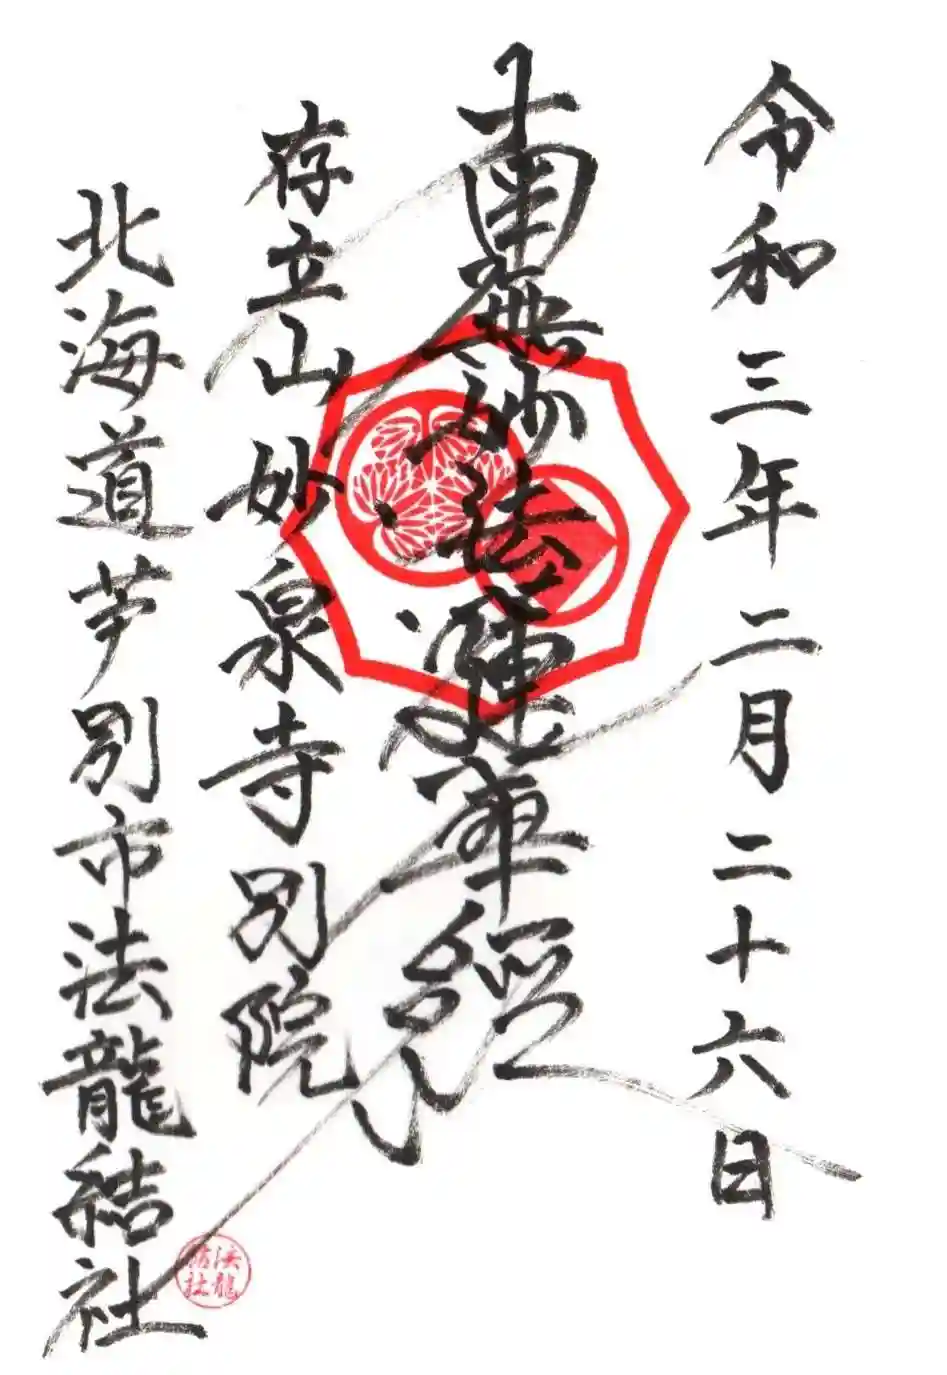 令和三年二月二十六日
南無妙法蓮華經
存立山妙泉寺別院
北海道芦別市法龍結社
法龍
結社